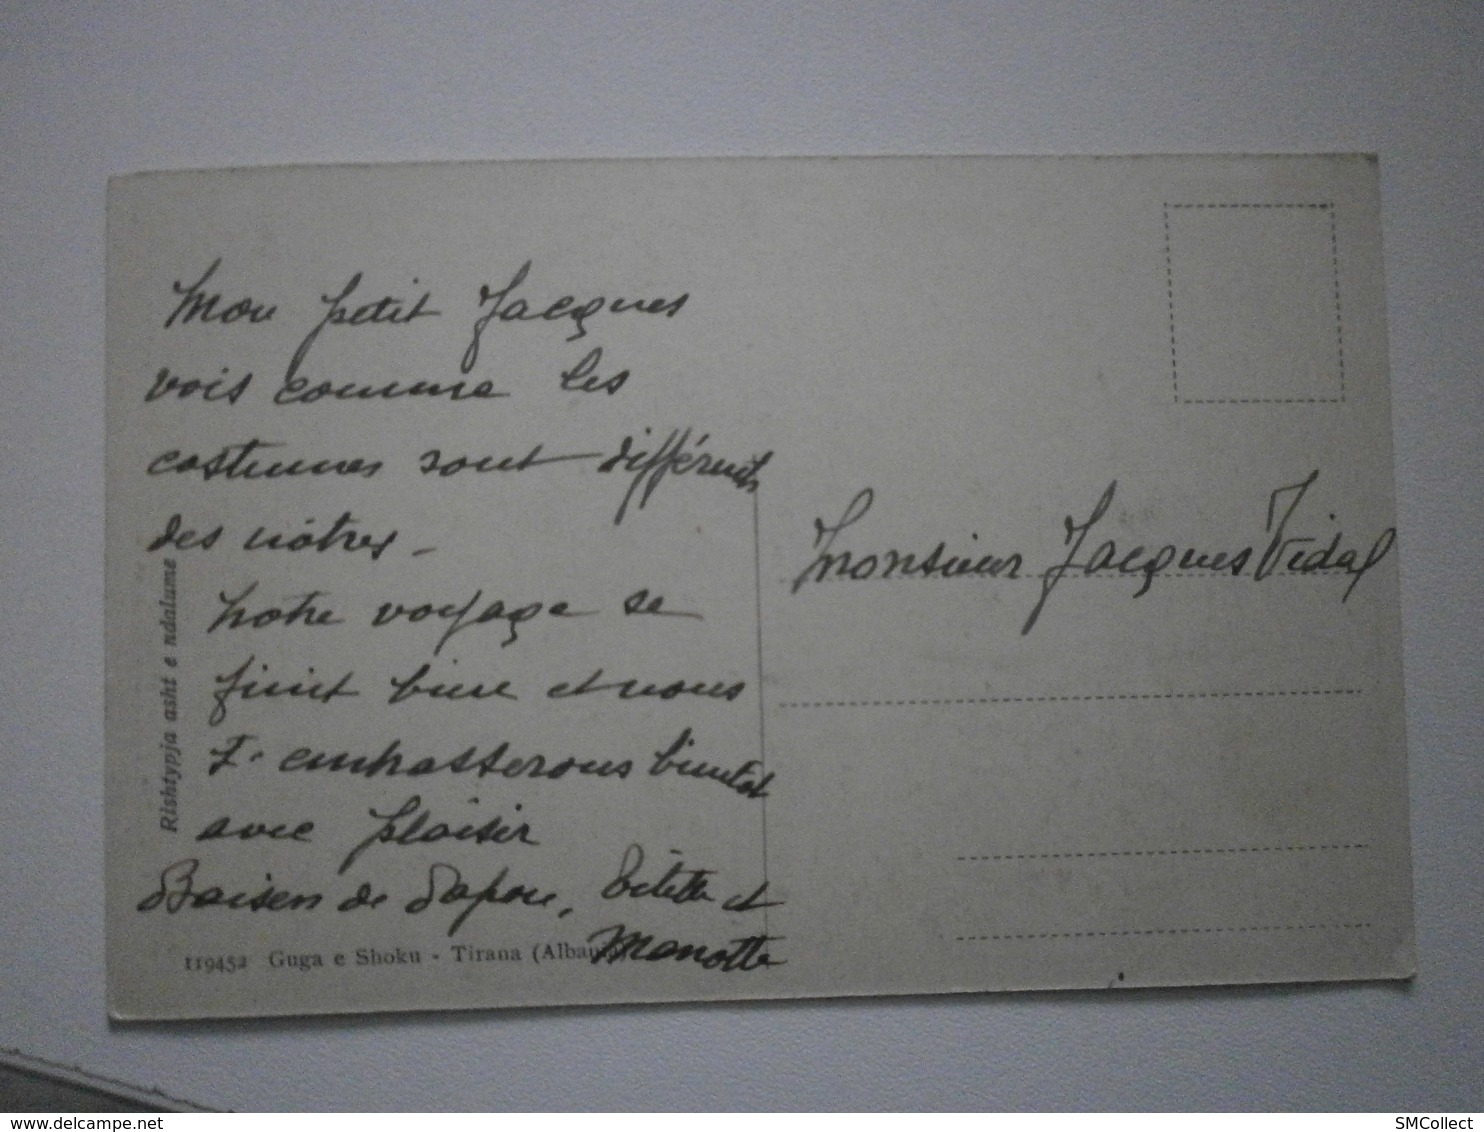 Mon petit Jacques
vois comme les
costumes sont différents
des nôtres -
Notre voyage se
finit bien et nous
t'embrasserons bientôt
avec plaisir
Baisers de et
Manotte
Monsieur Jacques Vidal
Rishtypja asht e ndalume
119452 Guga e Shoku - Tirana (Albanie)
delcampe.net
SMCollect